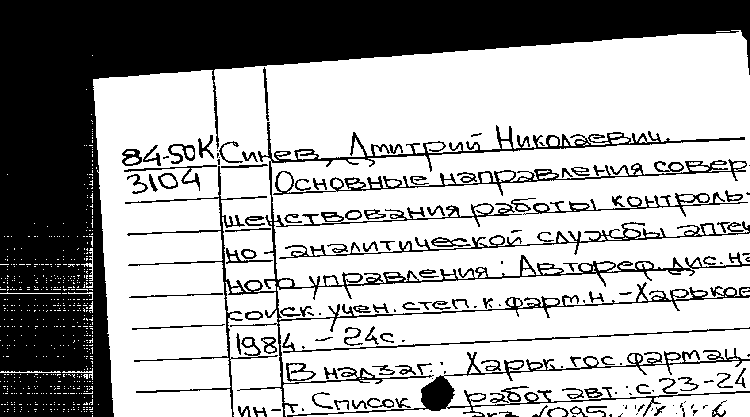 84-50К Синев, Дмитрий Николаевич.
3104 Основные направления совер-
шенствования работы контроль-
но-аналитической службы аптеч
ного управления: Автореф. дис. на
соиск. учен. степ. к. фарм. н. -Харьков
1984. - 24с.
В надзаг.: Харьк. гос. фармац.
ин-т. Список работ авт.: с.23-24